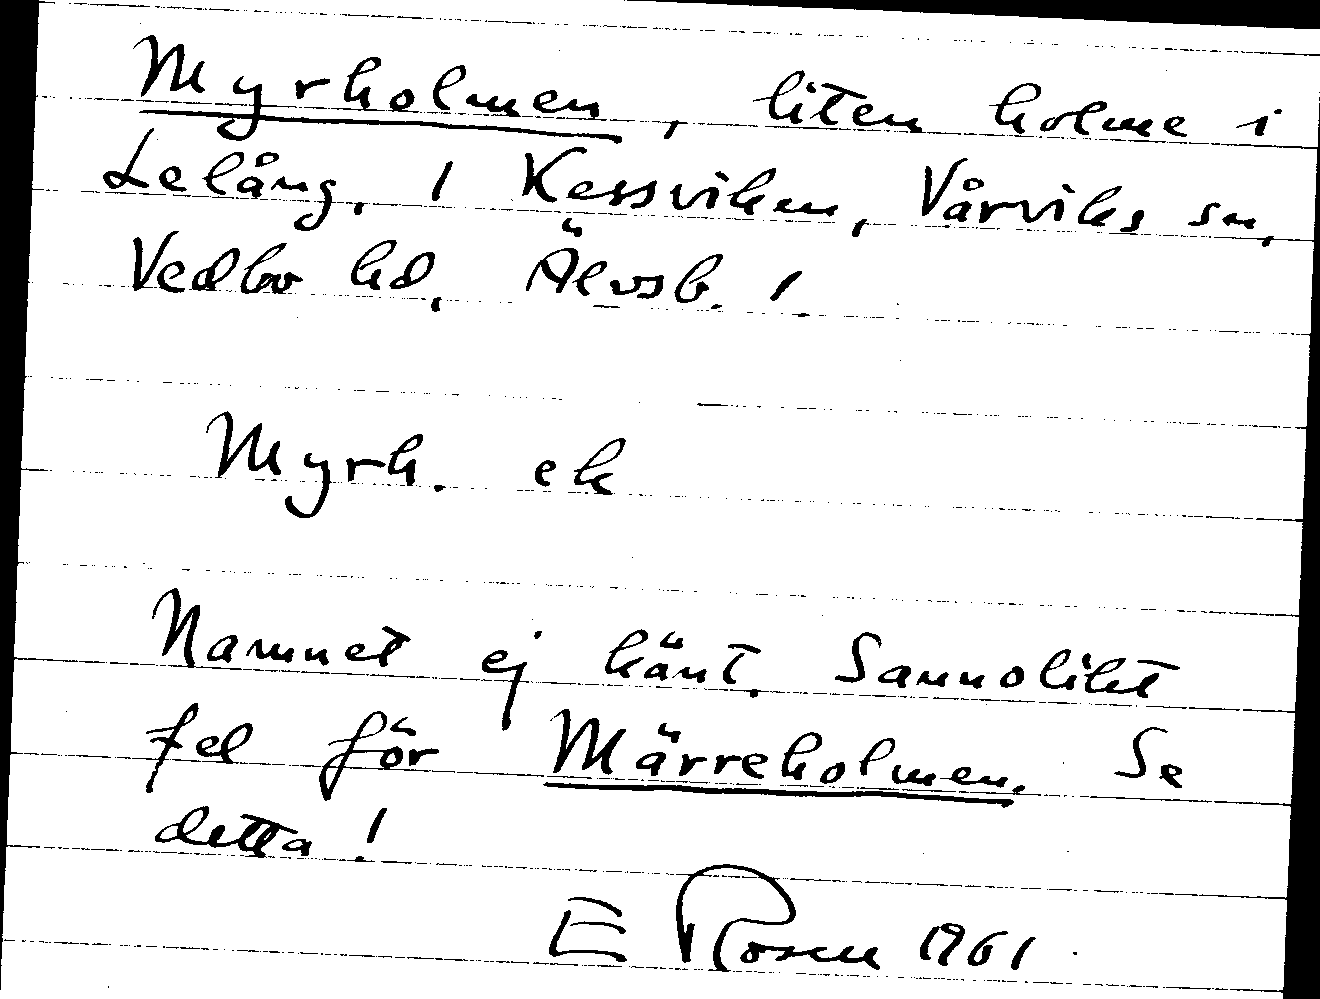 Myrholmen, liten holme i
Lelång, I Kessviken, Vårviks sn,
Vedbo hd, Älvsb. l.
Myrh. ek
Namnet ej känt. Sannolikt
fel för Märreholmen. Se
detta!
E Rosen 1961